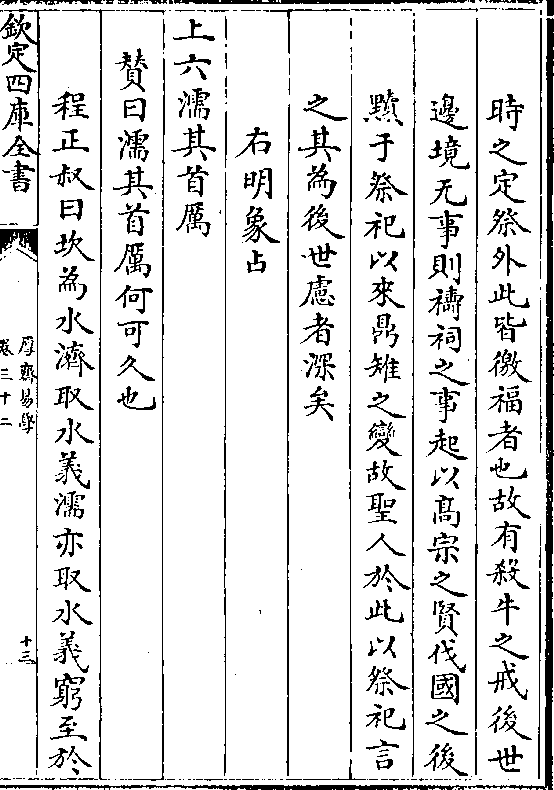 時之定祭外此皆徼福者也故有殺牛之戒後世
邊境无事則禱祠之事起以髙宗之賢伐國之後
黷于祭祀以來鼎雉之變故聖人於此以祭祀言
之其為後世慮者深矣
右明象占
上六濡其首厲
賛曰濡其首厲何可久也
程正叔曰坎為水濟取水義濡亦取水義窮至於
欽定四庫全書
厚齋易學
卷三十二
十三